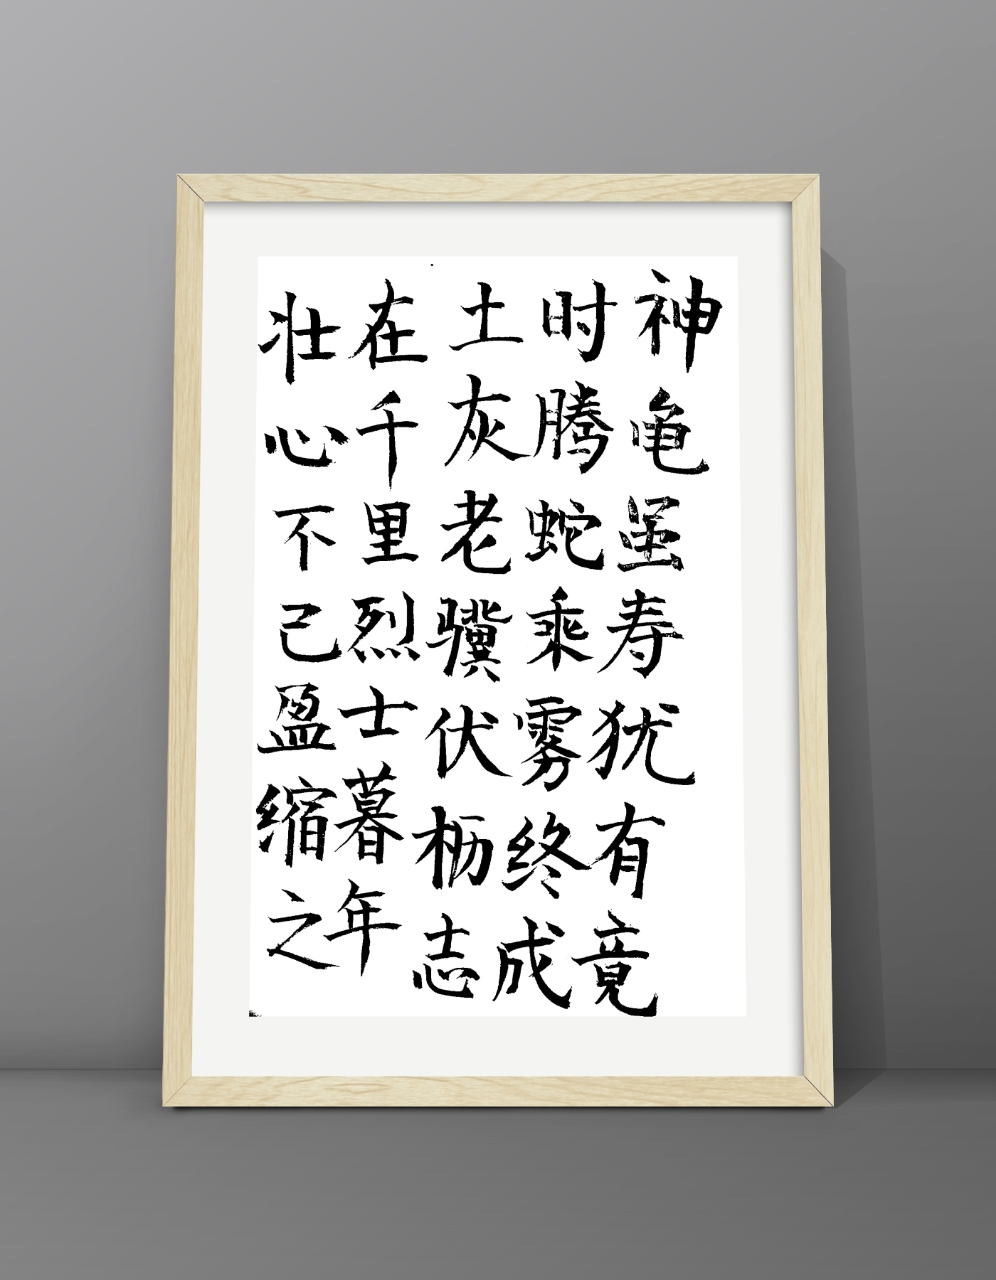 神龟虽寿犹有竟
时腾蛇乘雾终成
土灰老骥伏枥志
在千里烈士暮年
壮心不己盈缩之